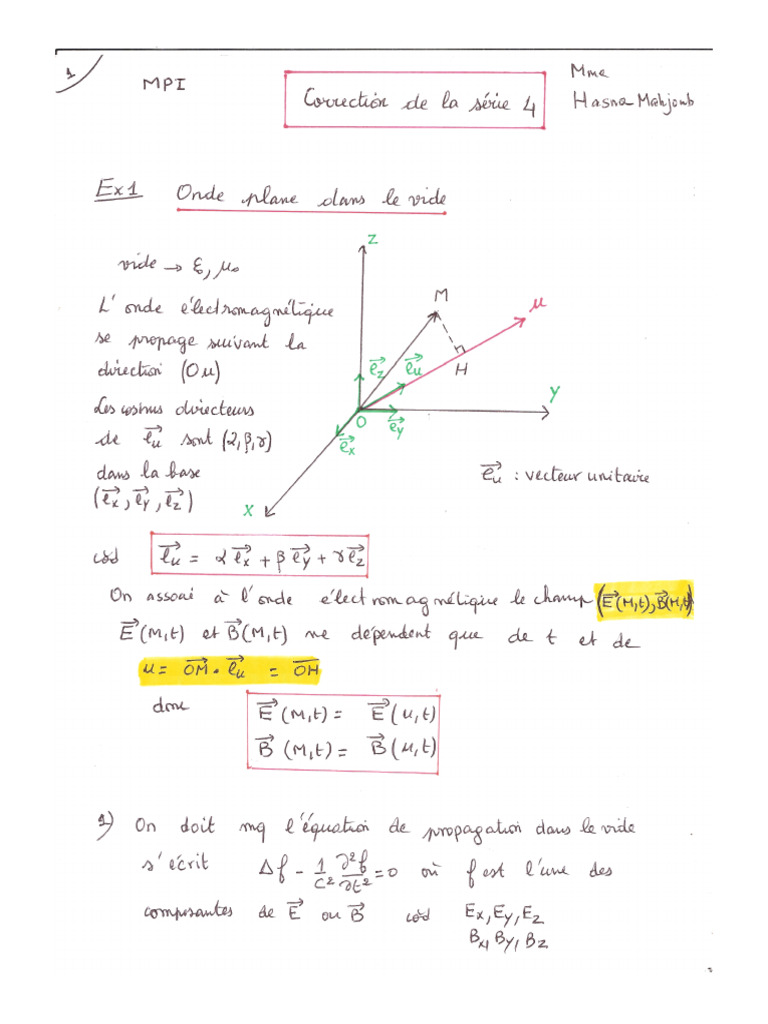 1
MPI
Correction de la série 4
Mme
Hasna Mahjoub
Ex1 Onde plane dans le vide
vide → ε₀, μ₀
L'onde électromagnétique
se propage suivant la
direction (Ou)
Les cosinus directeurs
de e⃗u sont (α, β, γ)
dans la base
(e⃗x, e⃗y, e⃗z)
z
M
u
H
e⃗z
e⃗u
y
O
e⃗y
e⃗x
x
e⃗u : vecteur unitaire
càd e⃗u = α e⃗x + β e⃗y + γ e⃗z
On associe à l'onde électromagnétique le champ (E⃗(M,t), B⃗(M,t))
E⃗(M,t) et B⃗(M,t) ne dépendent que de t et de
u = OM⃗ . e⃗u = O̅H̅
donc
E⃗(M,t) = E⃗(u,t)
B⃗(M,t) = B⃗(u,t)
1) On doit mq l'équation de propagation dans le vide
s'écrit Δf - 1/c² ∂²f/∂t² = 0 où f est l'une des
composantes de E⃗ ou B⃗ càd Ex, Ey, Ez
Bx, By, Bz